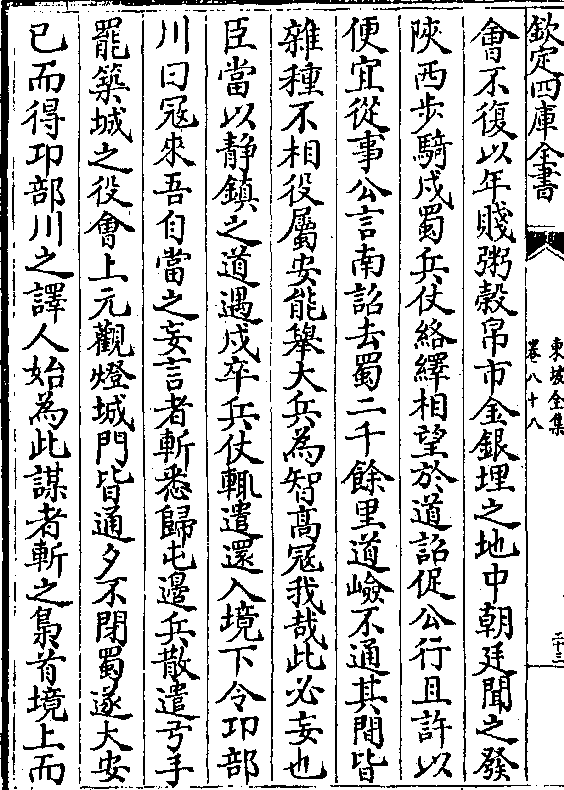 欽定四庫全書
東坡全集
卷八十八
二十三
會不復以年賤粥穀帛市金銀埋之地中朝廷聞之發
陜西步騎戍蜀兵仗絡繹相望於道詔促公行且許以
便宜從事公言南詔去蜀二千餘里道嶮不通其間皆
雜種不相役屬安能舉大兵為智高冦我哉此必妄也
臣當以靜鎮之道遇戍卒兵仗輒遣還入境下令卭部
川曰冦來吾自當之妄言者斬悉歸屯邊兵散遣弓手
罷築城之役會上元觀燈城門皆通夕不閉蜀遂大安
已而得卭部川之譯人始為此謀者斬之梟首境上而